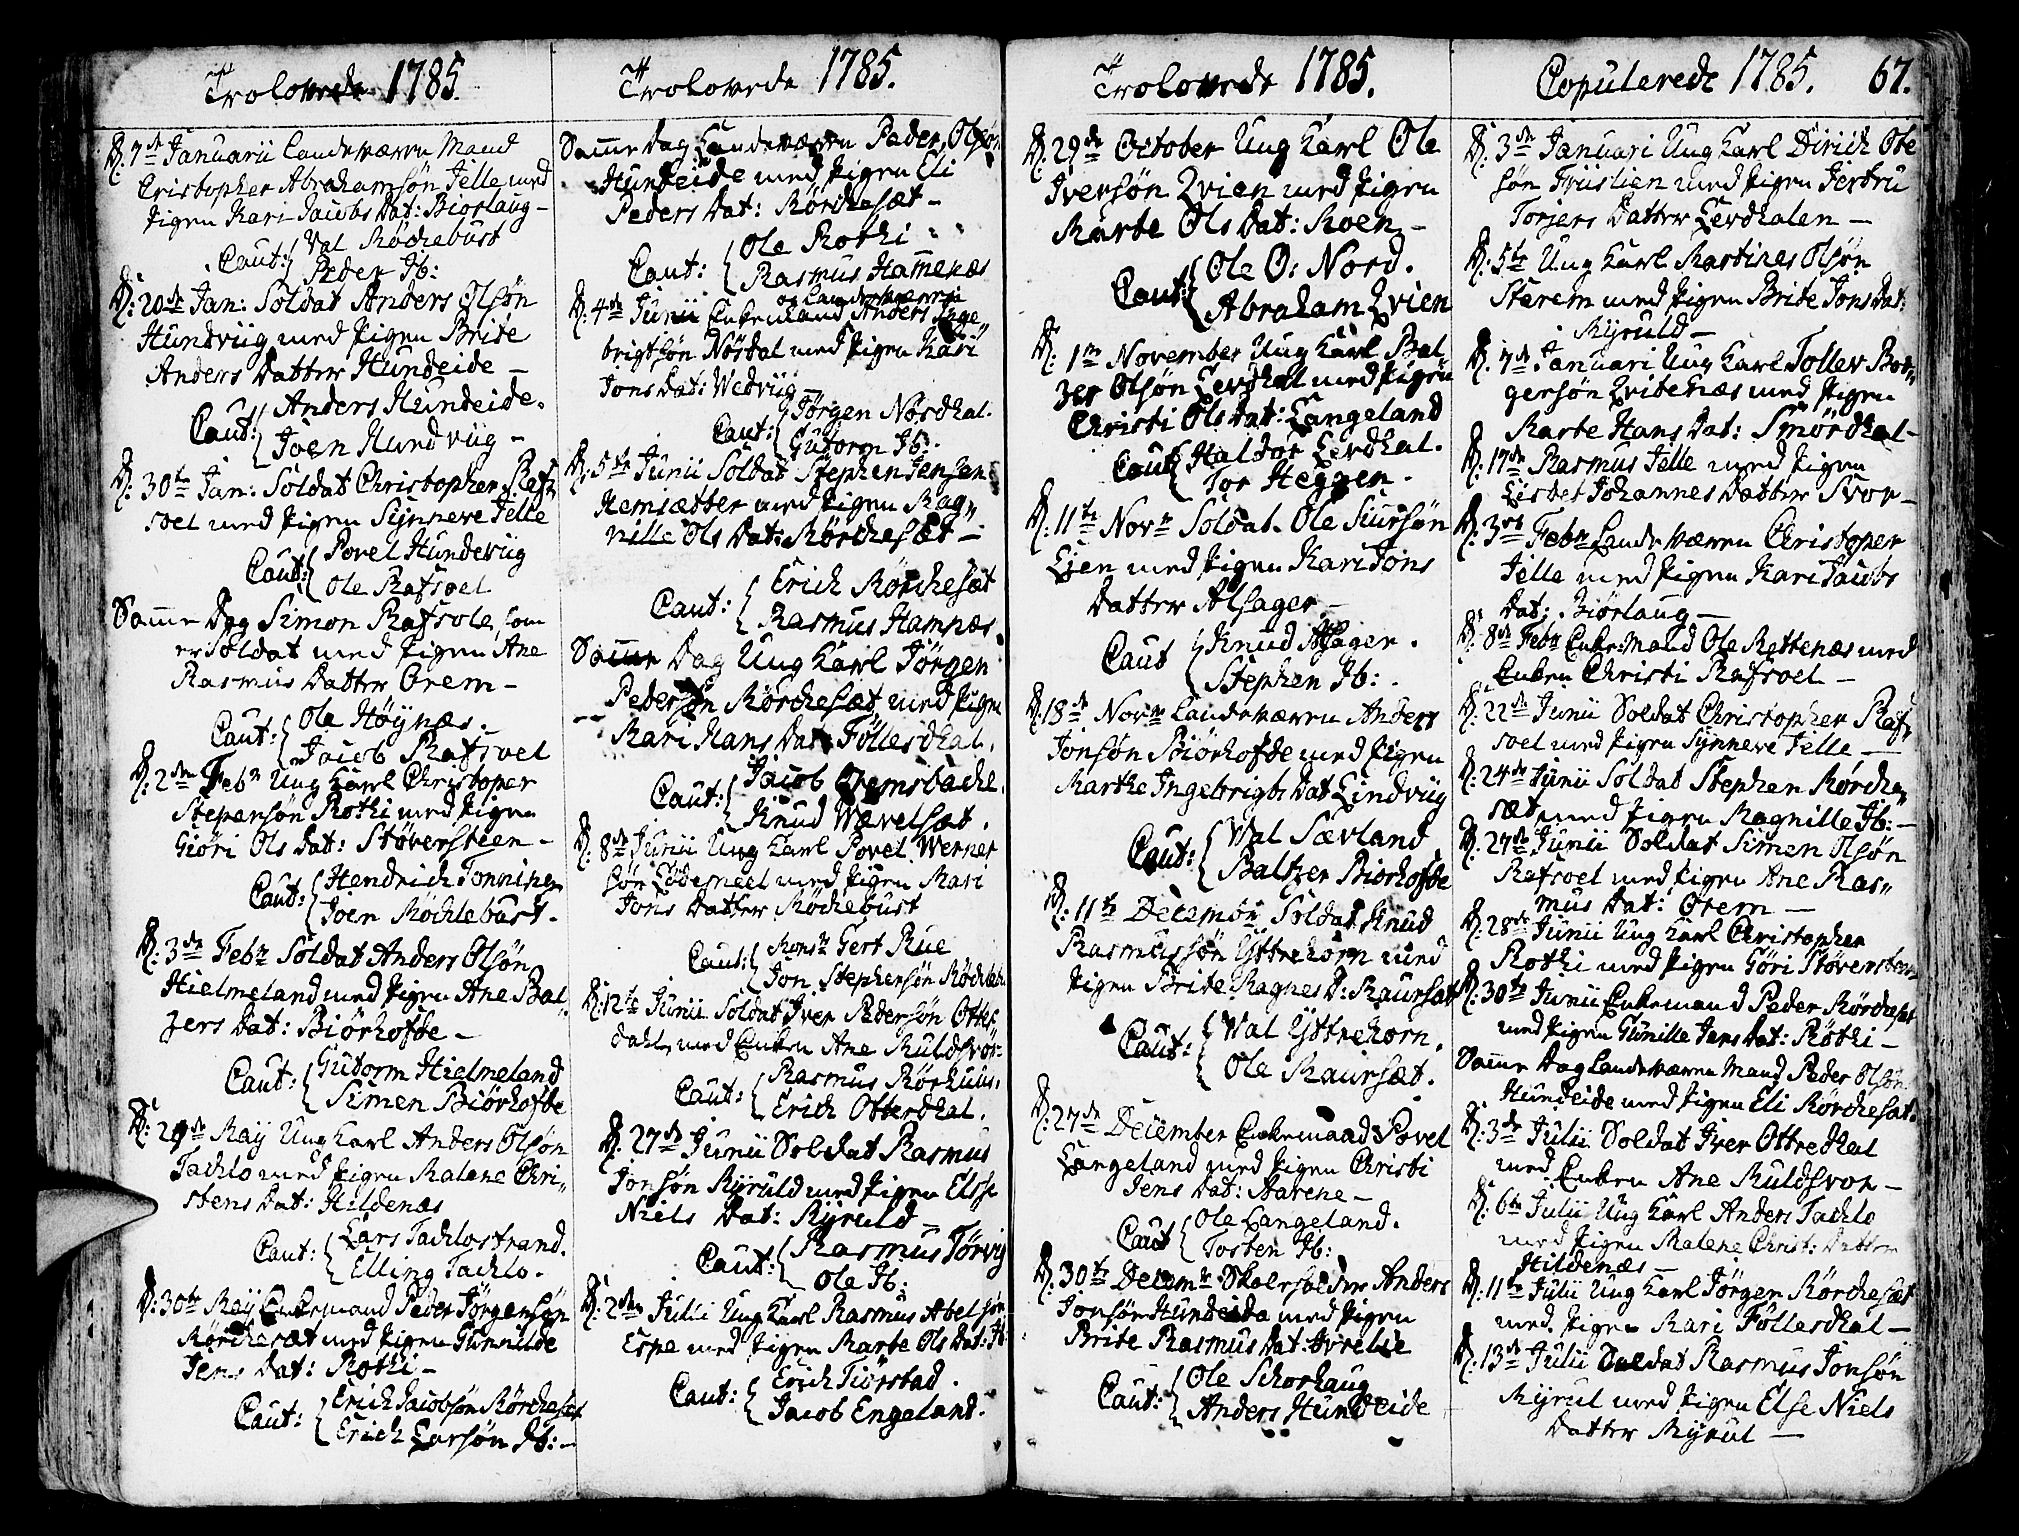 Trolovede 1785.
D: 7de Januarii Landeværn Mand
Cristopher Abrahamsøn Jelle med
Pigen Kari Jacobs Dat: Biørlaug -
Caut: Val Røchebust
Peder Ib:
D: 20de Jan: Soldat Anders Olsøn
Hundviig med Pigen Brite
Anders Datter Hundeide -
Caut: Anders Hundeide.
Joen Hundviig -
D: 30te Jan: Soldat Christopher Rafs
voel med Pigen Synneve Jelle
Caut: Povel Hundeviig
Ole Rafsvoel
Samme Dag Simon Rafsvole, som
er Soldat med Pigen Ane
Rasmus Datter Orem -
Caut: Ole Høynæs.
Jacob Rafsvoel
D: 2den Febr Ung Karl Christoper
Stepensøn Rothi med Pigen
Giøri Ols Dat: Støversteen -
Caut: Hendrich Tonning
Joen Røchlebust.
D: 3de Febr Soldat Anders Olsøn
Hielmeland med Pigen Ane Bal,,
zers Dat: Biørhofde -
Caut: Gutorm Hielmeland
Simen Biørhofde
D: 29de Maij Ung Karl Anders Olsøn
Tachlo med Pigen Malene Chri,,
stens Dat: Hildenæs
Caut: Lars Tachlostrand.
Elling Tachlo.
D: 30te Maij Enkemand Peder Jørgensøn
Rørchesæt med Pigen Gunnilde
Jens Dat: Rothi -
Caut: Erich Jacobsøn Rørchesæt
Erich Larsøn Ib: -
Trolovede 1785.
Samme Dag Landeværn Peder Olsøn
Hundeide med Pigen Eli
Peders Dat: Rørchesæt -
Caut: Ole Rothi
Rasmus Hamnæs
og Landeværn
D: 4de Junii Enkemand Anders Inge,,
brigtsøn Nørdal med Pigen Kari
Jons Dat: Wedviig -
Caut: Jørgen Nørdhal.
Gutorm Ib:
D: 5te Junii Soldat Stephen Jensøn
Hemsætter med Pigen Mag,,
nille Ols Dat: Rørchesæt -
Caut: Erich Rørchesæt
Rasmus Hamnæs.
Samme Dag Ung Karl Jørgen
Pedersøn Rørchesæt med Pigen
Kari Hans Dat: Føllesdhal.
Caut: Jacob Oremsbache
Knud Wævelsæt.
D: 8de Junii Ung Karl Povel Werner
søn Lødemeel med Pigen Mari
Jons Datter Røchebust
Caut: Monsr Gert Rue
Jon Stephensøn Røchleb:
D: 12te Junii Soldat Iver Pedersøn Otter
dahl med Enken Ane Muldsvor
Caut: Rasmus Rørhuus.
Erich Otterdhal.
D. 27de Junii Soldat Rasmus
Jonsøn Myruld med Pigen Else
Niels Dat: Myruld -
Caut: Rasmus Tørvig
Ole Ib:
D: 2den Julii Ung Karl Rasmus Abelsøn
Espe med Pigen Marte Ols Dat: Ib:
Caut: Erich Tiørstad.
Jacob Engeland.
Trolovede 1785.
D: 29de October Ung Karl Ole
Iversøn Qvien med Pigen
Marte Ols Dat: Moen -
Caut: Ole O: Nord.
Abraham Qvien
D. 1te November Ung Karl Bal,,
zer Olsøn Lerdhall med Pigen
Christi Ols Dat: Langeland
Caut: Haldor Lerdhal.
Tor Heggen.
D: 11te Novr Soldat Ole Siursøn
Lien med Pigen Kari Jons
Datter Alsager -
Caut Knud Alsager.
Stephen Ib:
D: 18de Novr Landeværn Anders
Jonsøn Biørhofde med Pigen
Marthe Ingebrigts Dat Lindviig
Caut: Val Sævland
Baltzer Biørhofde
D: 11te Decembr Soldat Knud
Rasmussøn Yttrehorn med
Pigen Brite Magnes D: Maursæt
Caut: Val Yttrehorn.
Ole Maursæt.
D: 27de December Enkemand Povel
Langeland med Pigen Christi
Jens Dat: Aarene -
Caut Ole Langeland.
Tosten Ib:
D: 30te Decemr Skoelholder Anders
Jonsøn Hundeide med Pigen
Brite Rasmus Dat: Avrelie
Caut: Ole Schorhaug
Anders Hundeide
Copulerede 1785. 67.
D: 3de Januari Ung Karl Dirich Ole
søn Frislien med Pigen Jertru
Torjers Datter Lerdhalen -
D: 5te Ung Karl Martines Olsøn
Starem med Pigen Brite Jons Dat:
Myruld -
D: 7de Januari Ung Karl Tollev Bot,,
gersøn Qvitenæs med Pigen
Marte Hans Dat: Smørdhal -
D: 17de Rasmus Jelle med Pigen
Lisbet Johannes Datter Svor -
D: 3die Febr Landeværn Christoper
Jelle med Pigen Kari Jacobs
Dat: Biørlaug -
D: 8de Febr Enke Mand Ole Rottenæs med
Enken Christi Rafsvoel -
D: 22de Junii Soldat Christopher Raf,,
svoel med Pigen Synneve Jelle -
D: 24de Junii Soldat Stephen Rørche,,
sæt med Pigen Magnille Ib: -
D: 27de Junii Soldat Simen Olsøn
Rafsvoel med Pigen Ane Ras,,
mus Dat: Orem -
D: 28de Junii Ung Karl Christopher
Rothi med Pigen Göri Støversteen
D: 30te Junii Enkemand Peder Rørchesæt
med Pigen Gunille Jens Dat: Røthi -
Samme Dag Landeværn Mand Peder Olsøn
Hundeide med Pigen Eli Rørchesæt.
D: 3de Julii Soldat Iver Ottredhal
med Enken Ane Muldsvor -
D: 6te Julii Ung Karl Anders Tachlo
med Pigen Malene Christ: Datter
Hildenæs -
D: 11te Julii Ung Karl Jørgen Rørchesæt
med Pigen Kari Føllesdhal -
D: 13de Julii Soldat Rasmus Jonsøn
Myrul med Pigen Else Niels
Datter Myrul -